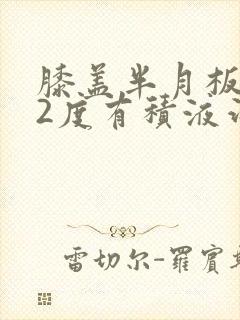 膝盖半月板
2度有積液
雷切尔-羅賓